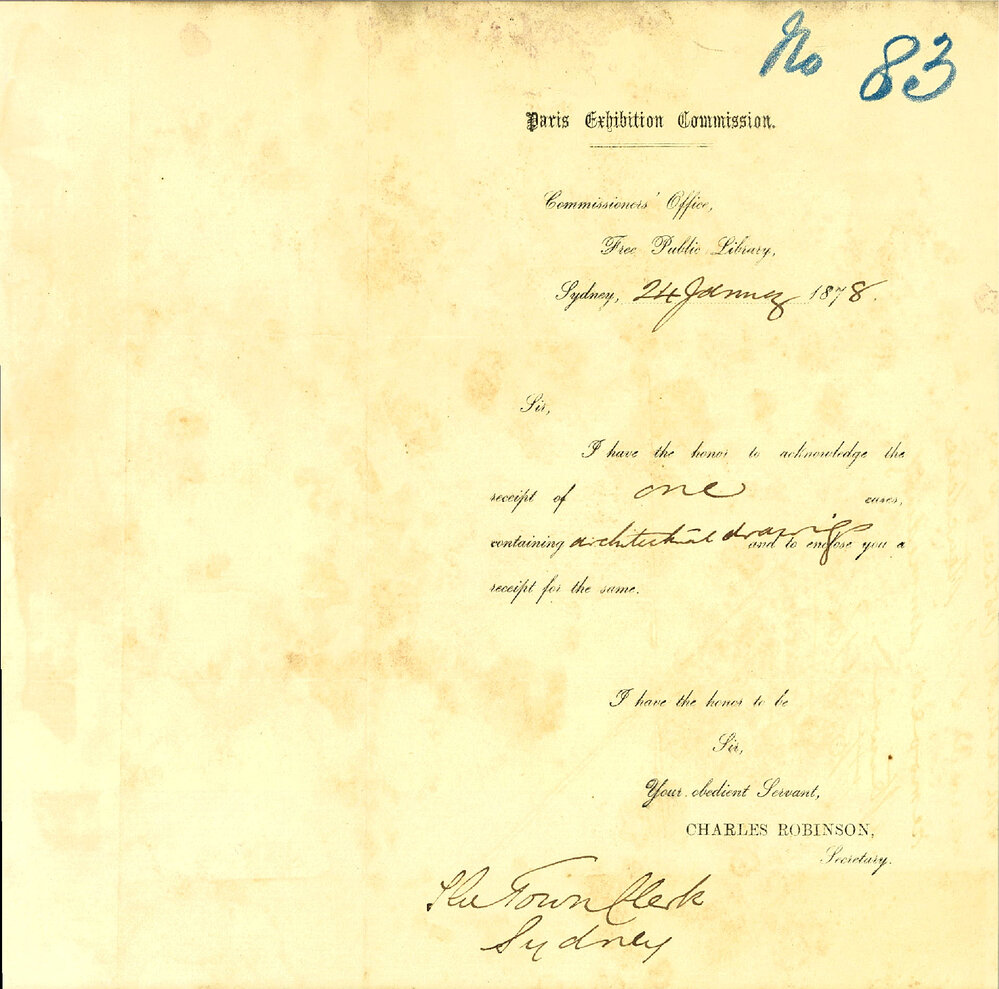 No 83
Paris Exhibition Commission.
Commissioners' Office,
Free Public Library,
Sydney, 24 January 1878.
Sir,
I have the honor to acknowledge the
receipt of one cases,
containing architectural drawings and to enclose you a
receipt for the same.
I have the honor to be
Sir,
Your obedient Servant,
CHARLES ROBINSON,
Secretary.
The Town Clerk
Sydney